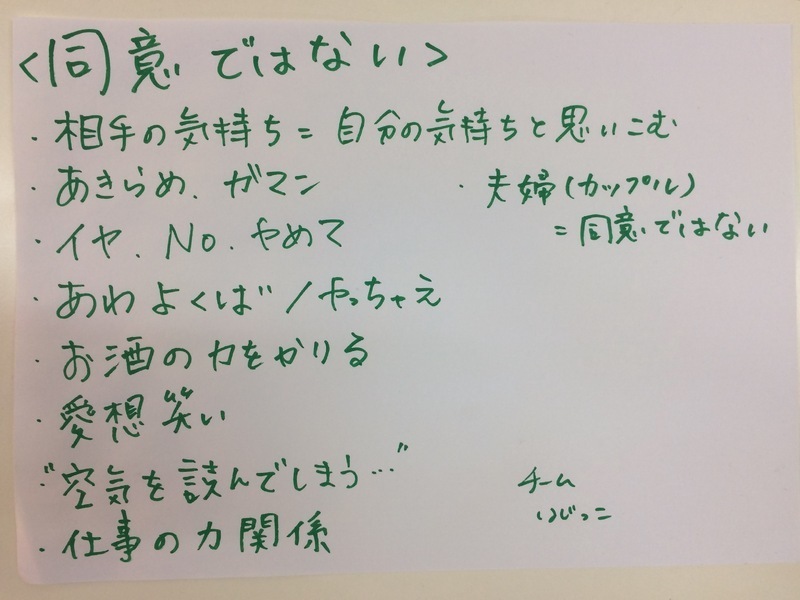 <同意ではない>
・相手の気持ち = 自分の気持ちと思いこむ
・あきらめ、ガマン
・イヤ、No、やめて
・あわよくば/やっちゃえ
・お酒の力をかりる
・愛想笑い
"空気を読んでしまう…"
・仕事の力関係
・夫婦(カップル)
=同意ではない
チーム
いじっこ